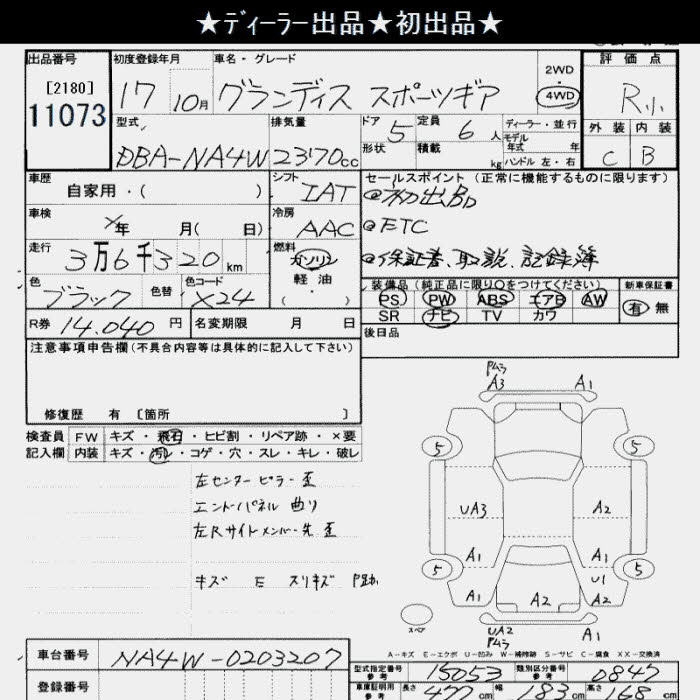 ★ディーラー出品★初出品★
出品番号 初度登録年月 車名・グレード 2WD 4WD 評価点
[2180] 11073 17 10月 グランディス スポーツギア R小
型式 排気量 ドア 5 定員 6人 ディーラー・並行 外装 内装
形状 積載 kg モデル年式 年
DBA-NA4W 2370cc ハンドル 左・右 C B
車歴 シフト セールスポイント (正常に機能するものに限ります)
自家用・( ) IAT @初出品
車検 冷房 @ETC
×年 月( 日) AAC @保証書、取説、記録簿
走行 3万6千320km 燃料 ガソリン 軽油 ・( )
色 色替 色コード 装備品(純正品に限り○をつけてください) 新車保証書
ブラック X24 PS PW ABS エアB AW 有 無
SR ナビ TV カワ
R券 14,040円 名変期限 月 日 後日品
注意事項申告欄(不具合内容等は具体的に記入して下さい)
修復歴 有 [箇所 ]
検査員 FW キズ・飛石・ヒビ割・リペア跡・×要
記入欄 内装 キズ・汚レ・コゲ・穴・スレ・キレ・破レ
左センターピラー 歪
エンドパネル 曲り
左Rサイドメンバー先 歪
キズ E スリキズ
A3 A1
5 5
UA3 A2
A1 A1
5 U1 5
A2 A2
スペア
UA2 A1
A-キズ E-エクボ U-凹み W-補修跡 S-サビ C-腐食 XX-交換済
車台番号 NA4W-0203207
型式指定番号 参考 15053 類別区分番号 参考 0847
登録番号
車庫証明用 参考 長さ 477cm 幅 183cm 高さ 168cm